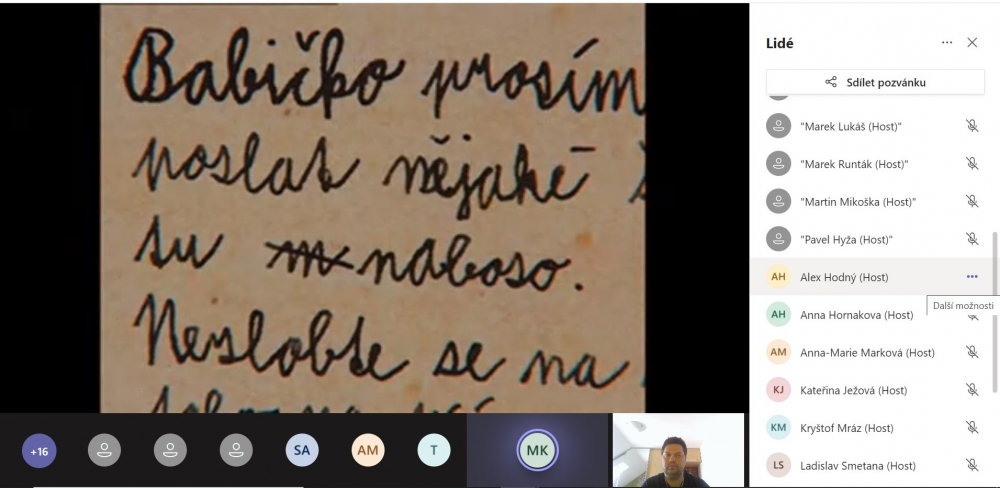 Babičko prosím
poslat nějaké
su naboso.
Nezlobte se na
Lidé
Sdílet pozvánku
"Marek Lukáš (Host)"
"Marek Runták (Host)"
"Martin Mikoška (Host)"
"Pavel Hyža (Host)"
AH Alex Hodný (Host)
Další možnosti
AH Anna Hornakova (Host)
AM Anna-Marie Marková (Host)
KJ Kateřina Ježová (Host)
KM Kryštof Mráz (Host)
LS Ladislav Smetana (Host)
+16 SA AM T MK